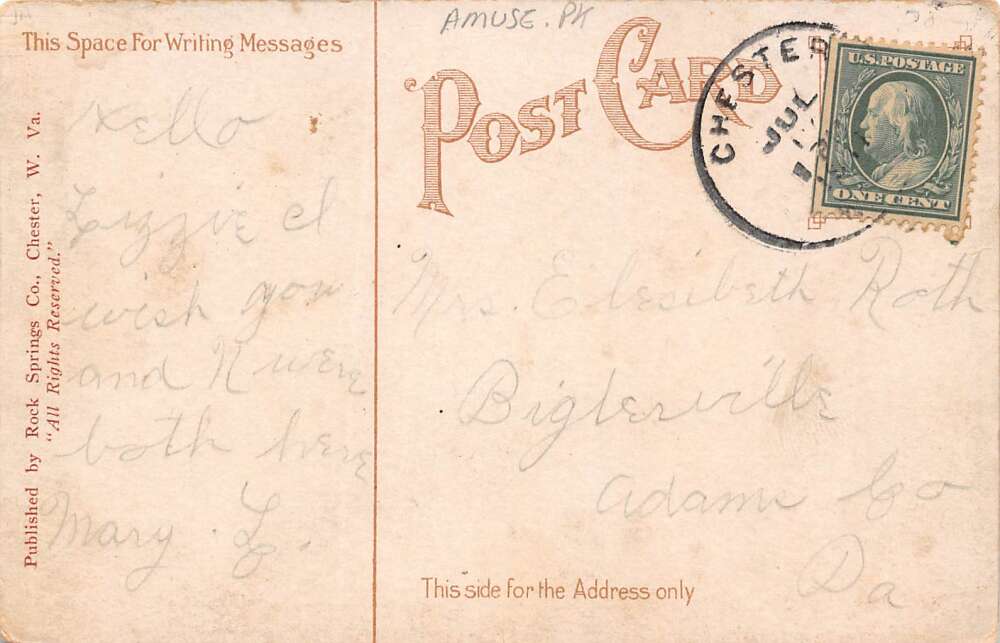 AMUSE. PK
This Space For Writing Messages
POST CARD
CHESTER
JUL
U.S. POSTAGE
ONE CENT
Hello
Lizzie I
wish you
and N were
both here
Mary L.
Published by Rock Springs Co., Chester, W. Va.
"All Rights Reserved."
Mrs. Elesibeth Roth
Biglerville
Adams Co
Pa
This side for the Address only